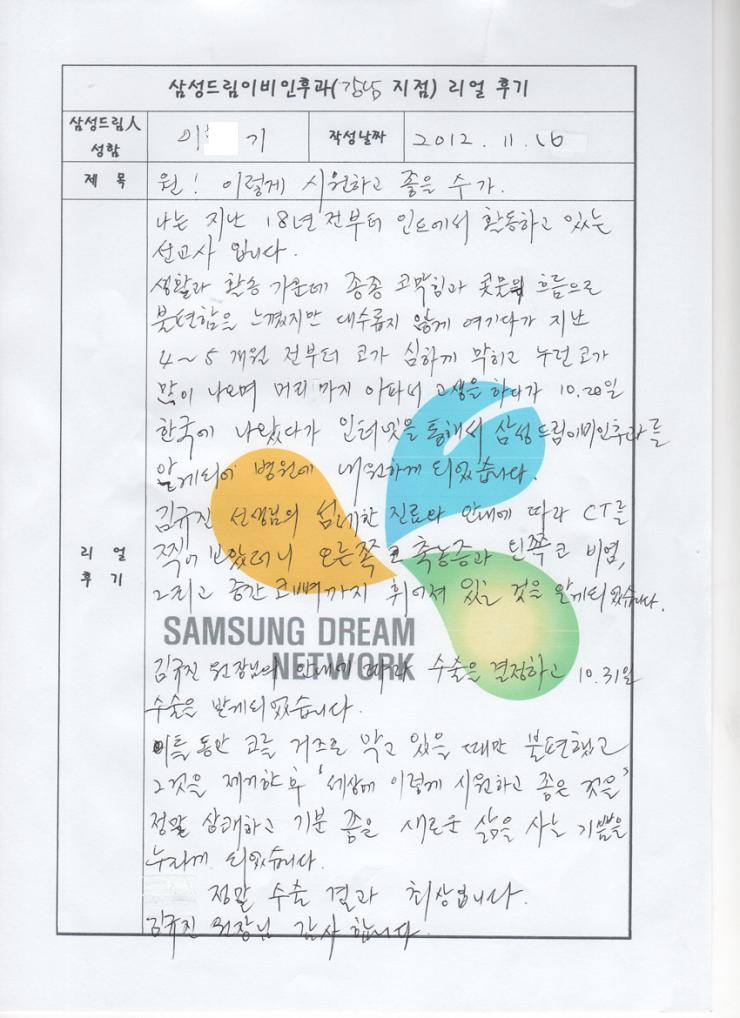 삼성드림이비인후과(강남 지점) 리얼 후기
삼성드림人 성함
이 기
작성날짜
2012. 11. 16
제 목
원! 이렇게 시원하고 좋을 수가.
리 얼 후 기
나는 지난 18년 전부터 인도에서 활동하고 있는
선교사 입니다.
생활과 활동 가운데 종종 코막힘과 콧물의 흐름으로
불편함을 느꼈지만 대수롭지 않게 여기다가 지난
4~5 개월 전부터 코가 심하게 막히고 누런코가
많이 나오며 머리까지 아파서 고생을 하다가 10.20일
한국에 나왔다가 인터넷을 통해서 삼성드림이비인후과를
알게되어 병원에 내원하게 되었습니다.
김규진 선생님의 섬세한 진료와 안내에 따라 CT를
찍어 보았더니 오른쪽 코 축농증과 왼쪽코 비염,
그리고 중간 코뼈까지 휘어져 있는 것을 알게되었습니다.
SAMSUNG DREAM
NETWORK
김규진 원장님의 안내에 따라 수술을 결정하고 10.31일
수술을 받게되었습니다.
이틀 동안 코를 거즈로 막고 있을 때만 불편했고
그것을 제거한 후 '세상에 이렇게 시원하고 좋은 것을'
정말 상쾌하고 기분 좋은 새로운 삶을 사는 기쁨을
누리게 되었습니다.
정말 수술 결과 최상입니다.
김규진 원장님 감사 합니다.